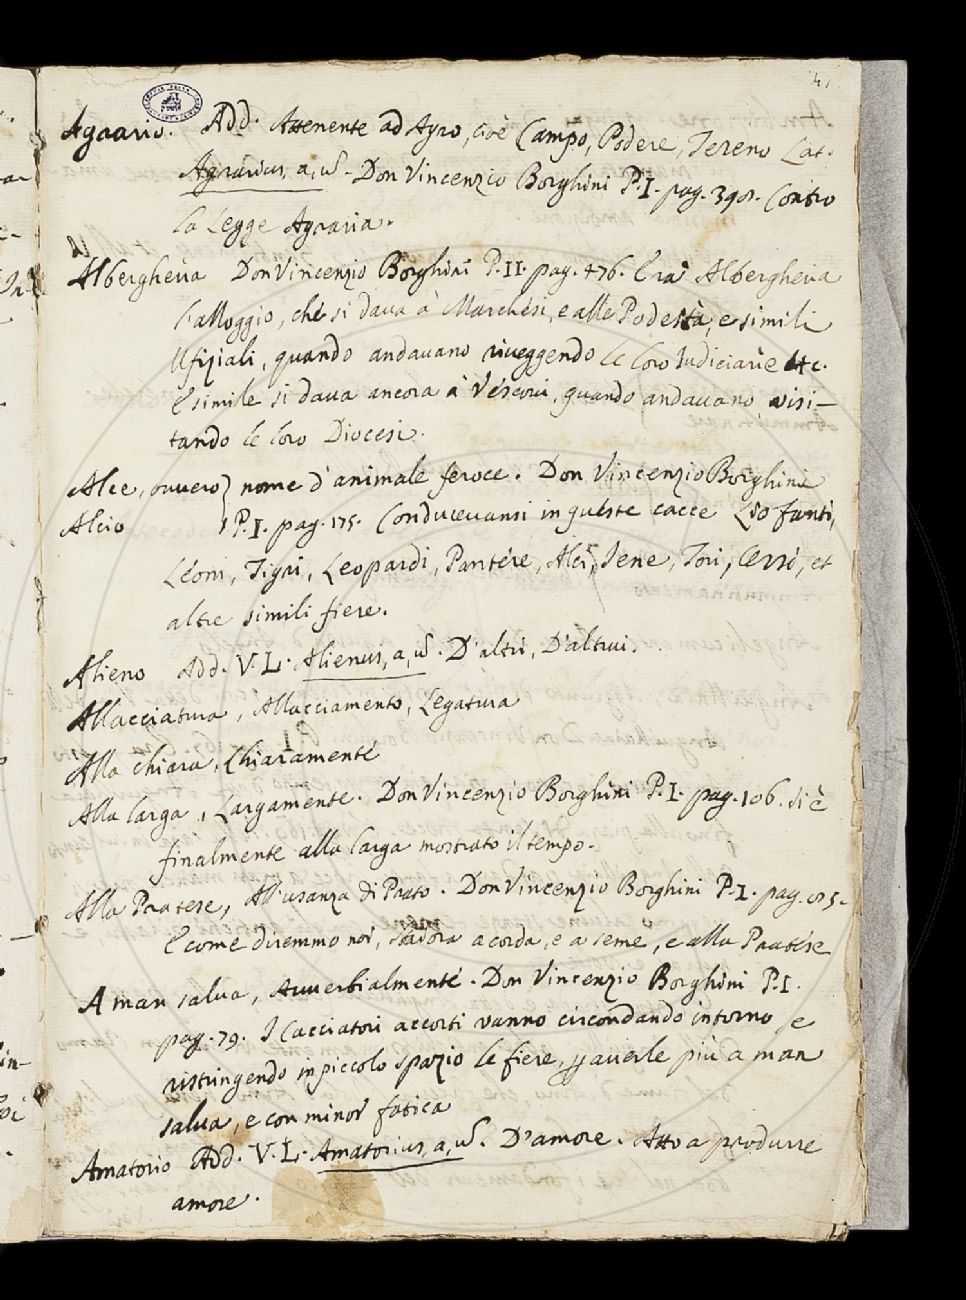 41
Agrario. Add. Attenente ad Agro, cioè Campo, Podere, Tereno Lat.
Agrarius, a, ũ. Don Vincenzio Borghini P.I. pag. 390. Contro
la Legge Agraria.
Albergheria Don Vincenzio Borghini P.II. pag. 476. Era Albergheria
l'alloggio, che si dava à Marchesi, e alle Podestà, e simili
Ufiziali, quando andavano riveggendo le loro Iudiciarie etc.
E simile si dava ancora à Véscovi, quando andavano visi-
tando le loro Diocesi.
Alce, ovvero} nome d'animale feroce. Don Vincenzio Borghini
Alcio P.I. pag. 175. Conducevansi in quéste cacce Liofanti,
Léoni, Tigri, Leopardi, Pantére, Alci, Iene, Tori, Cervi, et
altre simili fiere.
Alieno Add. V. L. Alienus, a, ũ. D'altri, D'altrui.
Allacciatura, Allacciamento, Legatura
Alla chiara, Chiaramenté
Alla larga, Largamente. Don Vincenzio Borghini P.I. pag. 106. Si è
finalmente alla larga mostrato il tempo.
Alla Pratese, All'usanza di Prato. Don Vincenzio Borghini P.I. pag.
E come diremmo noi, a corda, e a seme, e alla Pratése
A man salva, Avverbialmenté. Don Vincenzio Borghini P.I.
pag. 79. I Cacciatori accorti vanno circondando intorno e
ristringendo in piccolo spazio le fiere, averle più a man
salva, e con minor fatica
Amatorio Add. V. L. Amatorius, a, ũ. D'amore. Atto a produrre
amore.